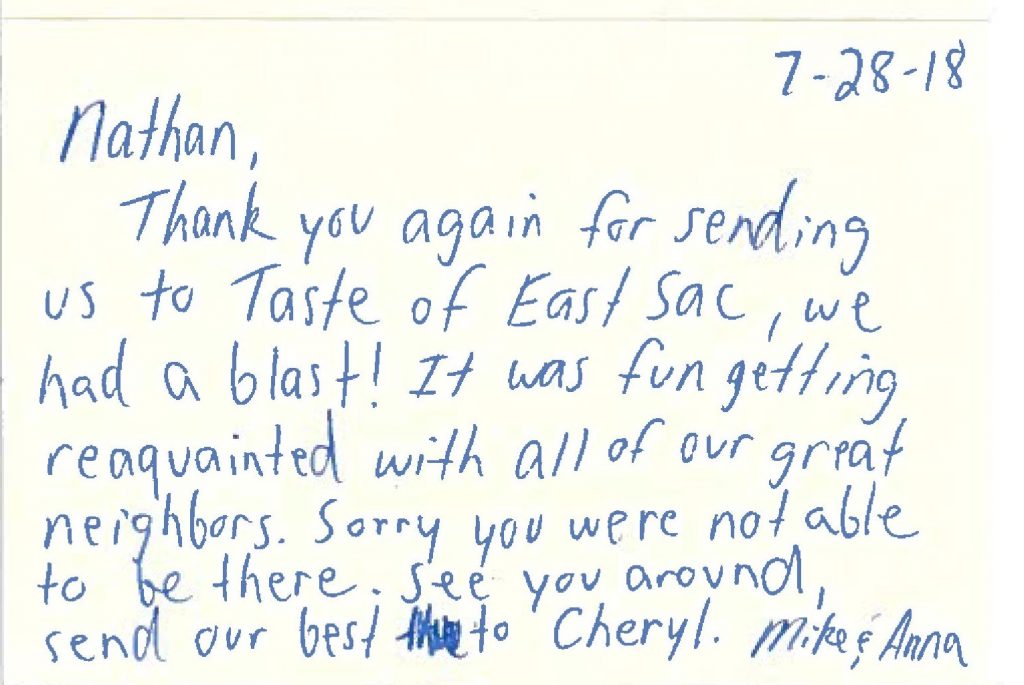 7-28-18
Nathan,
Thank you again for sending
us to Taste of East Sac, we
had a blast! It was fun getting
reaquainted with all of our great
neighbors. Sorry you were not able
to be there. See you around,
send our best to Cheryl. Mike & Anna